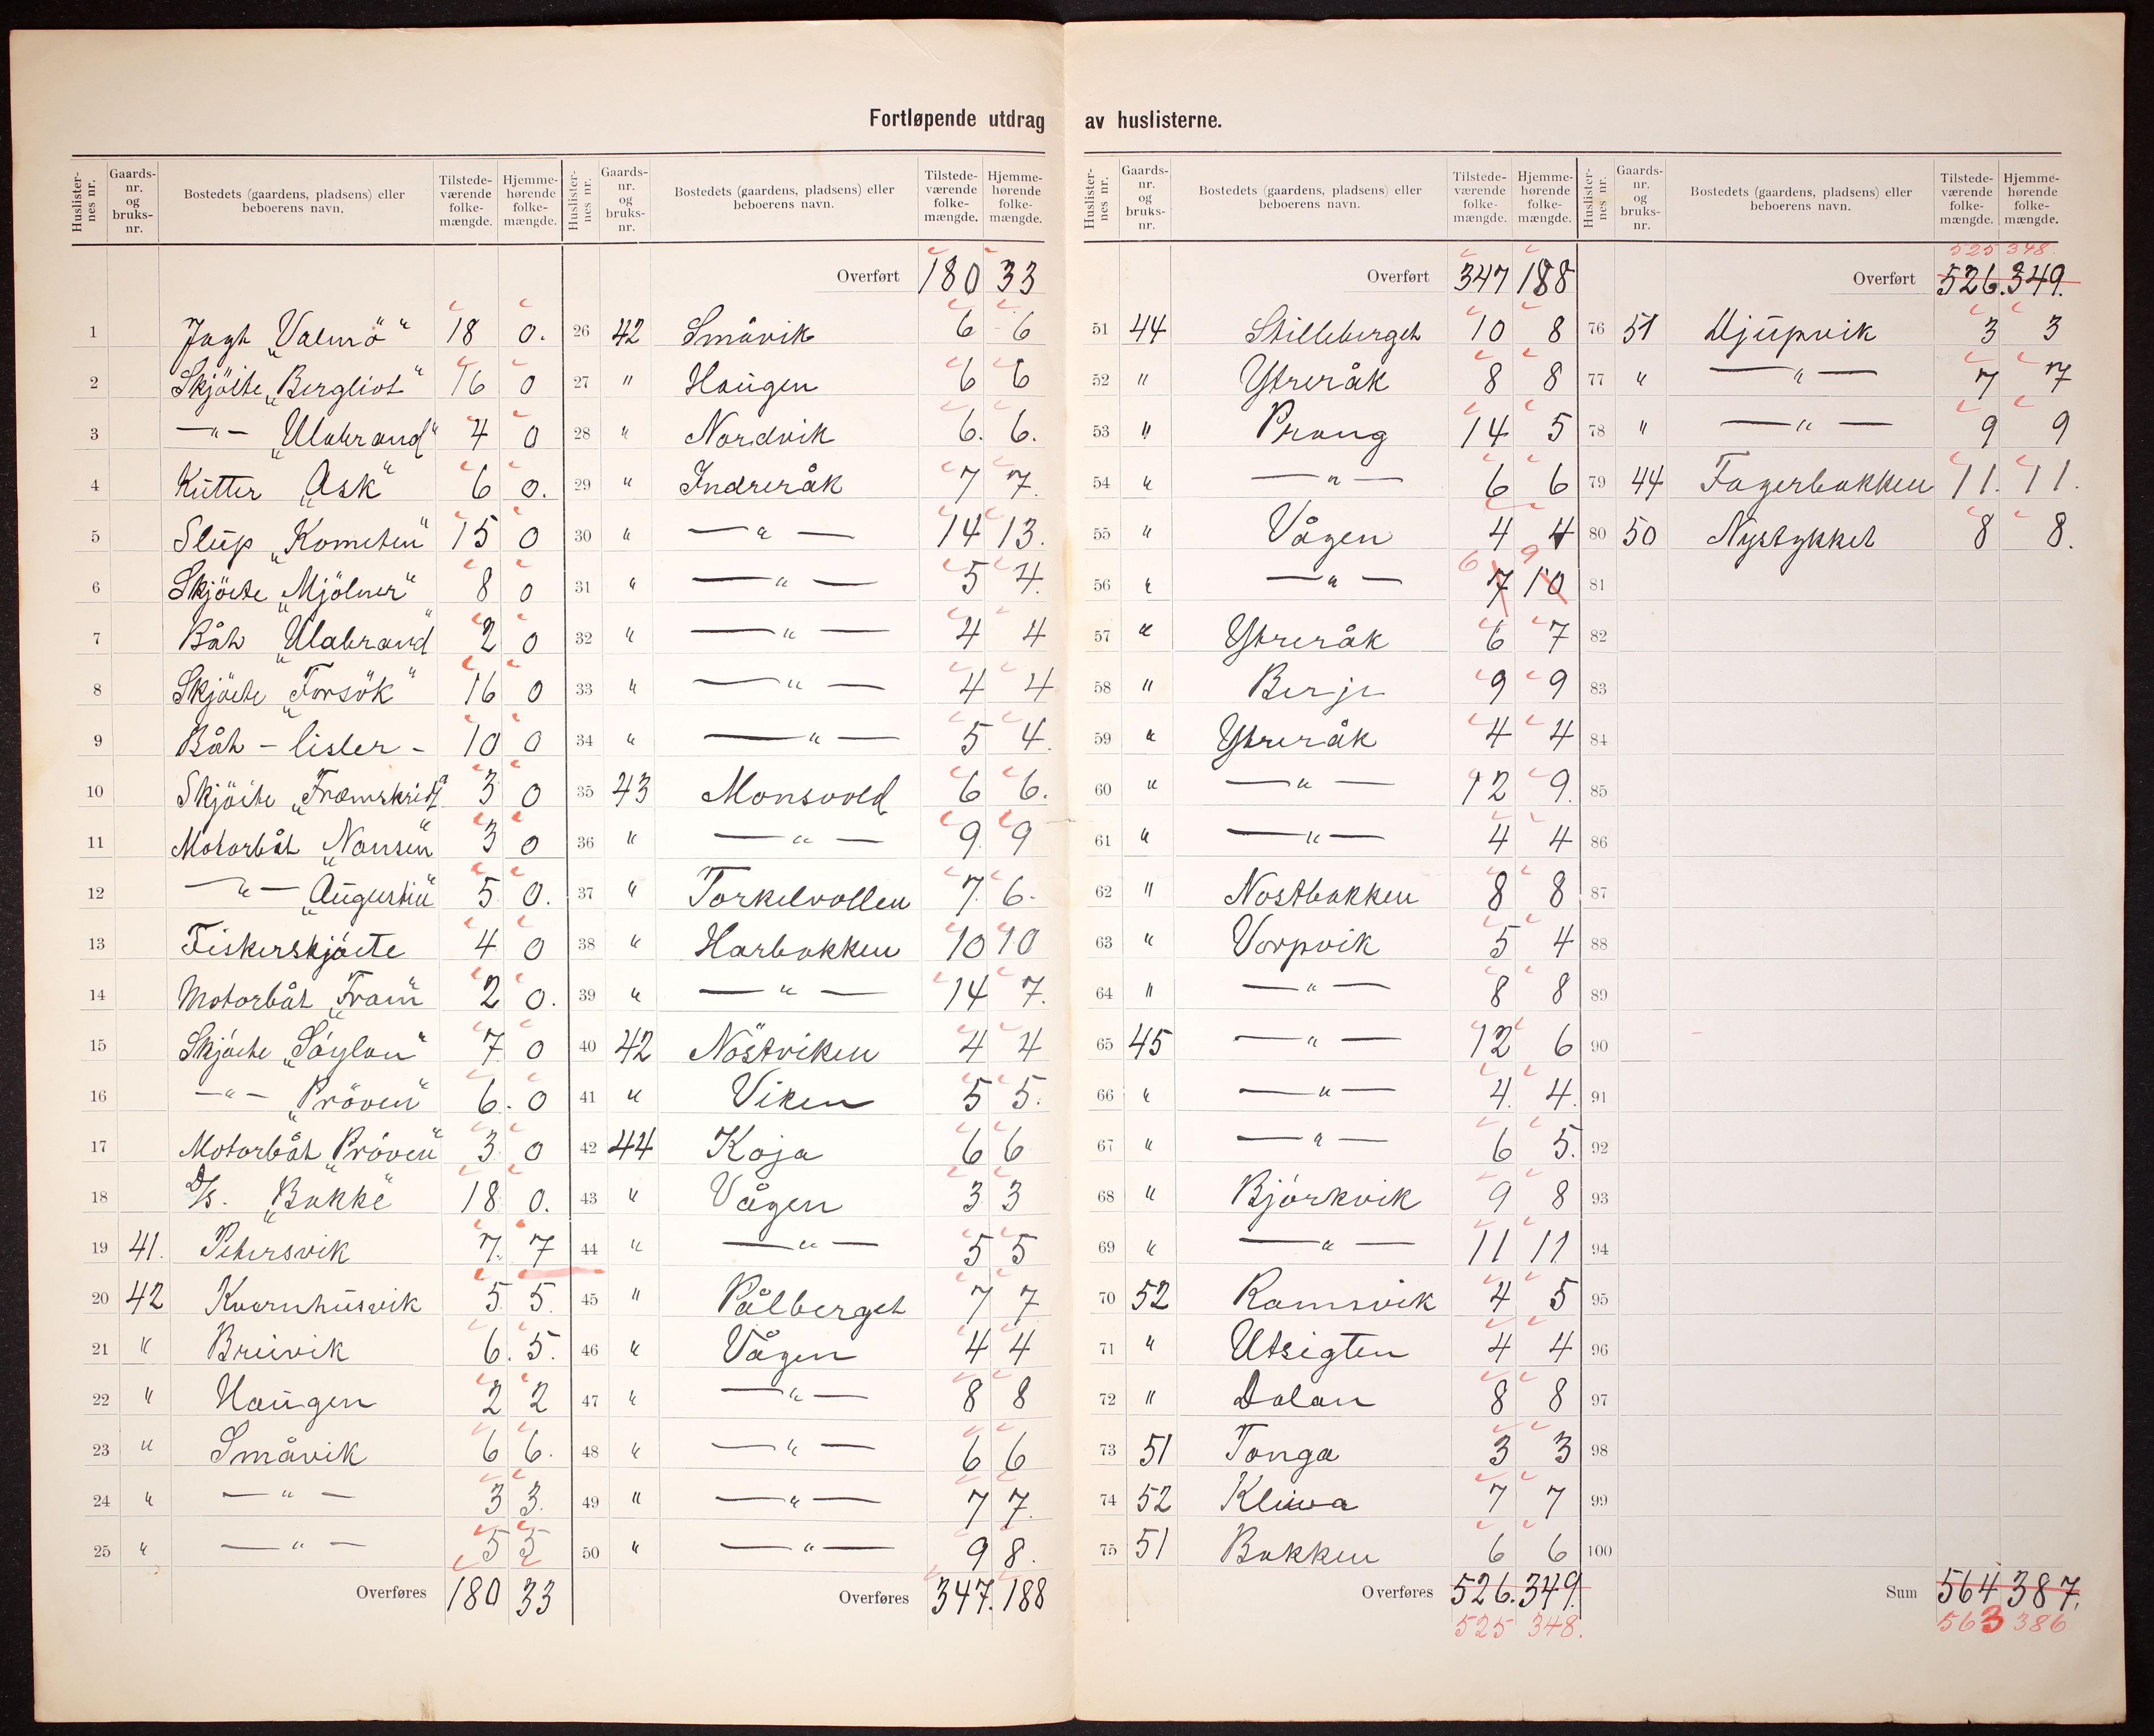 Fortløpende utdrag av huslisterne.
Huslisternes nr. Gaards-nr. og bruks-nr. Bostedets (gaardens, pladsens) eller beboerens navn. Tilstede-værende folke-mængde. Hjemme-hørende folke-mængde.
1 Jagt „Valmö“ 18 0.
2 Skjöite „Bergliot“ 16 0
3 —〃— „Ulabrand“ 4 0
4 Kutter „Ask“ 6 0.
5 Slup „Kometen“ 15 0
6 Skjöite „Mjölner“ 8 0
7 Båt „Ulabrand“ 2 0
8 Skjöite „Forsök“ 16 0
9 Båt - lister - 10 0
10 Skjöite „Framskridt“ 3 0
11 Motorbåt „Nansen“ 3 0
12 —〃— „Augustin“ 5 0.
13 Fiskerskjöite 4 0
14 Motorbåt „Fram“ 2 0.
15 Skjöite „Söylen“ 7 0
16 —〃— „Pröven“ 6. 0
17 Motorbåt „Pröven“ 3 0
18 D/s. „Bakke“ 18 0.
19 41. Petersvik 7. 7
20 42 Kvernhusvik 5 5.
21 〃 Breivik 6. 5.
22 〃 Haugen 2 2
23 〃 Småvik 6 6.
24 〃 —〃— 3 3.
25 〃 —〃— 5 5
Overføres 180 33
Huslisternes nr. Gaards-nr. og bruks-nr. Bostedets (gaardens, pladsens) eller beboerens navn. Tilstede-værende folke-mængde. Hjemme-hørende folke-mængde.
Overført 180 33
26 42 Småvik 6 6
27 〃 Haugen 6 6
28 〃 Nordvik 6. 6.
29 〃 Indreråk 7 7.
30 〃 —〃— 14 13.
31 〃 —〃— 5 4.
32 〃 —〃— 4 4
33 〃 —〃— 4 4
34 〃 —〃— 5 4.
35 43 Monsvold 6 6.
36 〃 —〃— 9. 9
37 〃 Torkelvollen 7. 6.
38 〃 Harbakken 10 10
39 〃 —〃— 14 7.
40 42 Nöstviken 4 4
41 〃 Viken 5 5.
42 44 Koja 6 6
43 〃 Vågen 3 3
44 〃 —〃— 5 5
45 〃 Pålberget 7 7
46 〃 Vågen 4 4
47 〃 —〃— 8 8
48 〃 —〃— 6 6
49 〃 —〃— 7 7.
50 〃 —〃— 9 8.
Overføres 347. 188
Huslisternes nr. Gaards-nr. og bruks-nr. Bostedets (gaardens, pladsens) eller beboerens navn. Tilstede-værende folke-mængde. Hjemme-hørende folke-mængde.
Overført 347 188
51 44 Stilleberget 10 8
52 〃 Ytreråk 8 8
53 〃 Prang 14 5
54 〃 —〃— 6 6
55 〃 Vågen 4 4
56 〃 —〃— 7 10 6 9
57 〃 Ytreråk 6 7
58 〃 Berje 9 9
59 〃 Ytreråk 4 4
60 〃 —〃— 12 9.
61 〃 —〃— 4 4
62 〃 Nostbakken 8 8
63 〃 Vorpvik 5 4
64 〃 —〃— 8 8
65 45 —〃— 12 6
66 〃 —〃— 4. 4.
67 〃 —〃— 6 5.
68 〃 Björkvik 9 8
69 〃 —〃— 11 11
70 52 Ramsvik 4 5
71 〃 Utsigten 4 4
72 〃 Dalan 8 8
73 51 Tonga 3 3
74 52 Kleiva 7 7
75 51 Bakken 6 6
Overføres 526. 349.
525 348.
Huslisternes nr. Gaards-nr. og bruks-nr. Bostedets (gaardens, pladsens) eller beboerens navn. Tilstede-værende folke-mængde. Hjemme-hørende folke-mængde.
525 348.
Overført 526. 349.
76 51 Djupvik 3 3
77 〃 —〃— 7 7
78 〃 —〃— 9 9
79 44 Fagerbakken 11. 11.
80 50 Nystykket 8 8.
81
82
83
84
85
86
87
88
89
90
91
92
93
94
95
96
97
98
99
100
Sum 564 387.
563 386